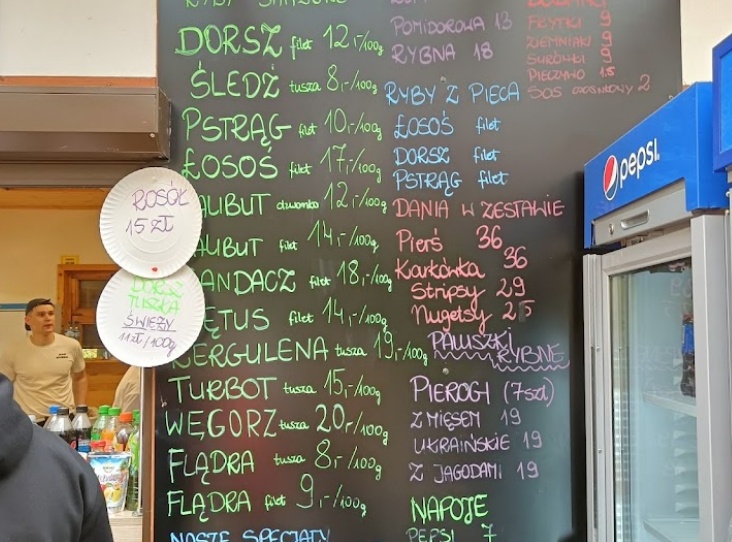 DORSZ filet 12,-/100g
ŚLEDŹ tusza 8,-/100g
PSTRĄG filet 10,-/100g
ŁOSOŚ filet 17,-/100g
ALIBUT dzwonko 12,-/100g
ALIBUT filet 14,-/100g
ANDACZ filet 18,-/100g
ĘTUS filet 14,-/100g
BERGULENA tusza 19,-/100g
TURBOT tusza 15,-/100g
WĘGORZ tusza 20,-/100g
FLĄDRA tusza 8,-/100g
FLĄDRA filet 9,-/100g
NASZE SPECJAŁY
ROSÓŁ
15 ZŁ
DORSZ
TUSZKA
ŚWIEŻY
11 zł/100g
POMIDOROWA 13
RYBNA 18
RYBY Z PIECA
ŁOSOŚ filet
DORSZ filet
PSTRĄG filet
DANIA W ZESTAWIE
Pierś 36
Karkówka 36
Stripsy 29
Nugetsy 25
PALUSZKI
RYBNE
PIEROGI (7szt)
Z MIĘSEM 19
UKRAIŃSKIE 19
Z JAGODAMI 19
NAPOJE
PEPSI 7
DODATKI
FRYTKI 9
ZIEMNIAKI 9
SURÓWKI 9
PIECZYWO 1,5
SOS czosnkowy 2
pepsi